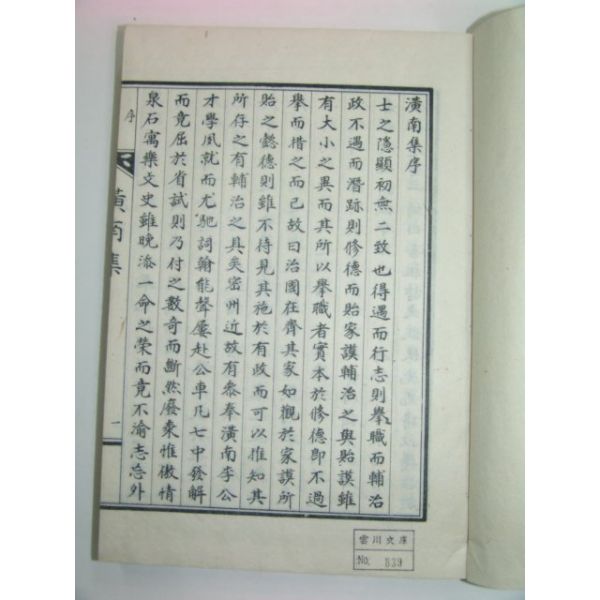 潢南集序
士之隱顯初無二致也得遇而行志則擧職而輔治
政不遇而潛跡則修德而貽家謨輔治之與貽謨雖
有大小之異而其所以擧職者實本於修德卽不過
擧而措之而已故曰治國在齊其家如觀於家謨所
貽之懿德則雖不待見其施於有政而可以惟知其
所存之有輔治之具矣密州近故有叅奉潢南李公
才學夙就而尤馳詞翰能聲屢赴公車凡七中發解
而竟屈於省試則乃付之數奇而斷然廢棄惟傲情
泉石寓樂文史雖晩添一命之榮而竟不渝志怎外
序
黃南集
一
雲川文庫
No. 839